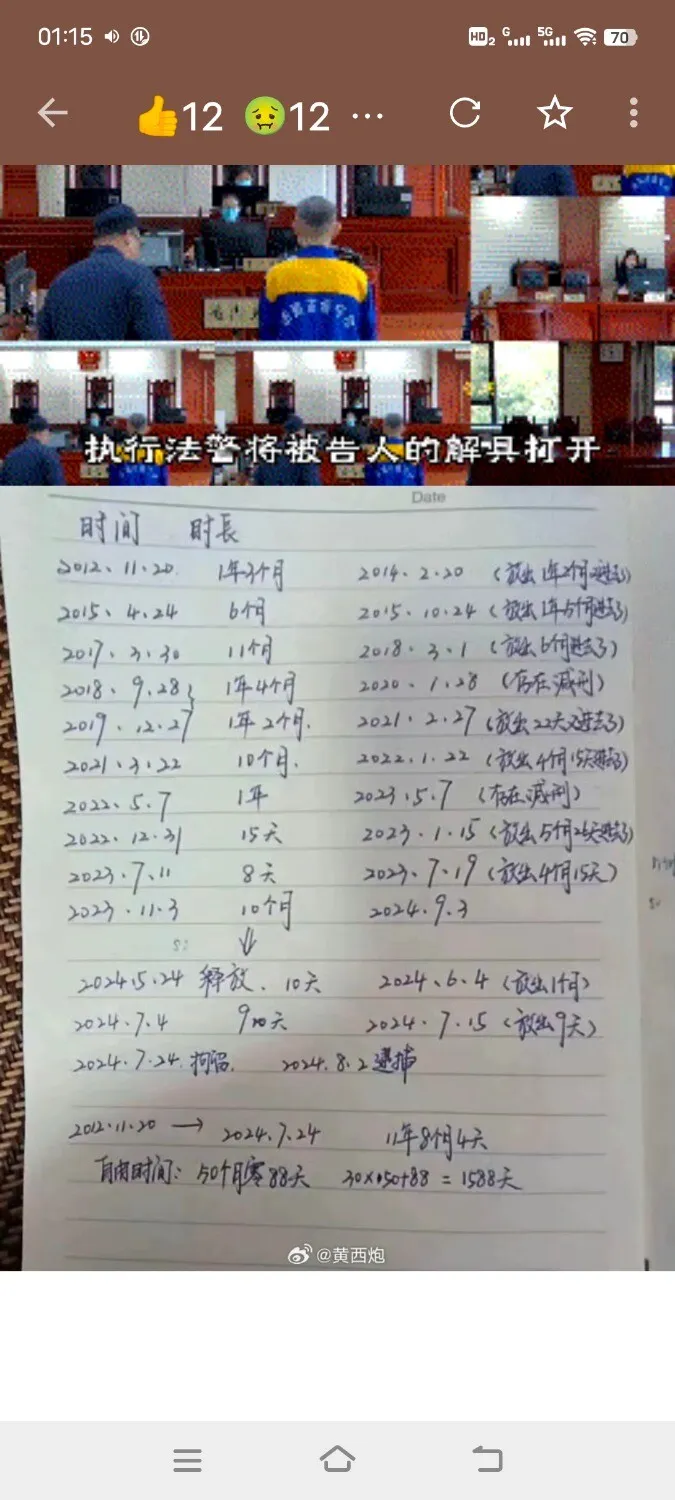 01:15
HD2 G 5G 70
👍12 🤢12 ...
执行法警将被告人的解具打开
Date
时间 时长
2012、11.20. 1年3个月 2014、2.20 (放出1年2个月又进去了)
2015、4.24 6个月 2015、10.24 (放出1年5个月进去了)
2017、3.30 11个月 2018、3.1 (放出6个月进去了)
2018、9.28 1年4个月 2020、1.28 (存在减刑)
2019、12.27 1年2个月. 2021.2.27 (放出22天又进去了)
2021.3.22 10个月. 2022.1.22 (放出4个月15天进去了)
2022.5.7 1年 2023.5.7 (存在减刑)
2022.12.31 15天 2023.1.15 (放出5个月26天进去了)
2023.7.11 8天 2023.7.19 (放出4个月15天)
2023.11.3 10个月 2024.9.3
2024.5.24 释放. 10天 2024.6.4 (放出1个月)
2024.7.4 天 2024.7.15 (放出9天)
2024.7.24.拘留. 2024.8.2逮捕
2012.11.20 → 2024.7.24 11年8个月4天
自由时间: 50个月零88天 30×50+88=1588天
@黄西炮